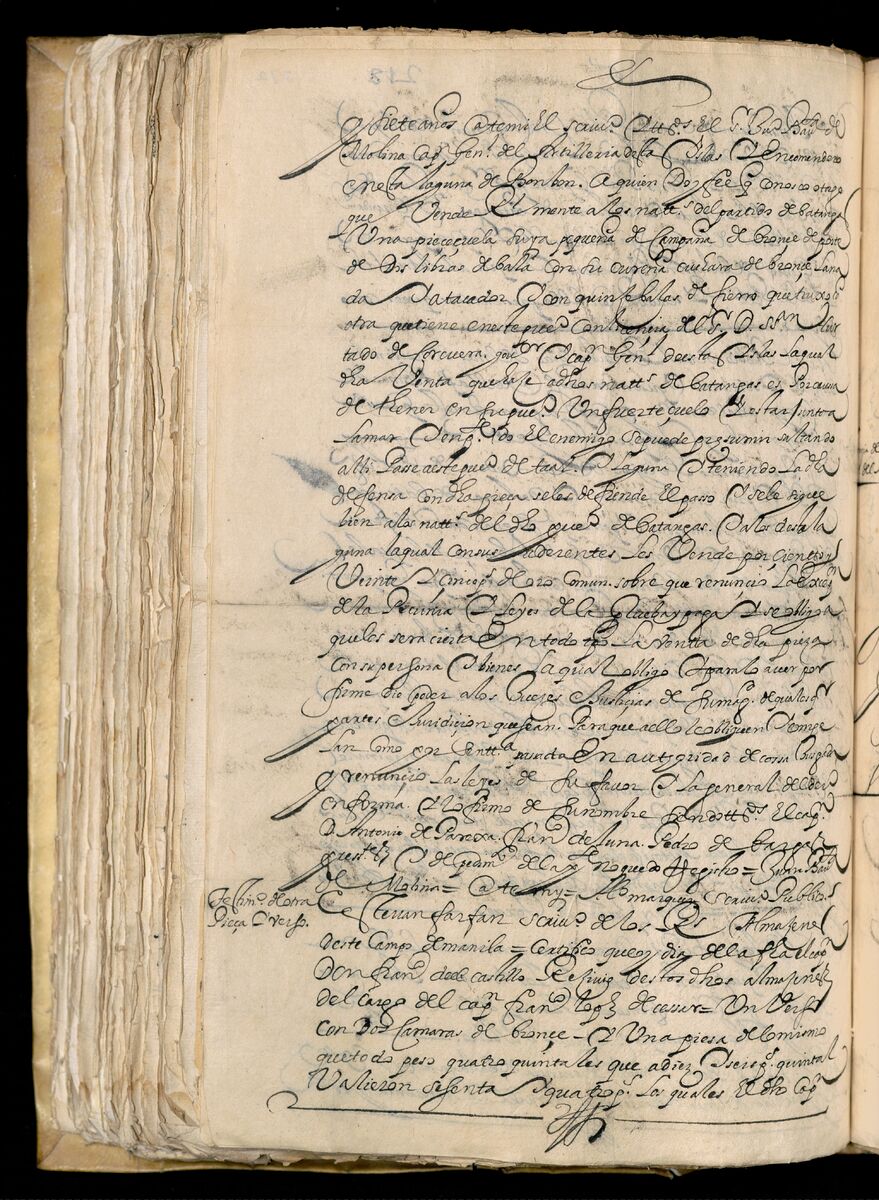 y siete años Ante mi El scriu.º Y tt.os El s.r Bar.me Bau.ta de
Molina Cap.n Gen.l del Artilleria desta Yslas Y Encomendero
en esta laguna de Bonbon. A quien Doy fee q Conosco otorgo
que Vende Rl mente a los natt.s del partido de batanga
Una pieçeçuela suya pequeña de Campaña de bronce de porte
de Dos libras de bala Con su cureña cuchara de bronçe Lana
da Y atacador Y con quinse balas de fierro que truxo
otra que tiene en este pue.º Con licencia del S.r D. Seu.n Hur
tado de Corcuera. gou.or Y cap.n Gen.l desta Yslas La qual
dha Venta que hase a dhos natt.s de batangas es Por causa
de thener en su pue.º Un fuerteçuelo Y estar junto a
La mar Y en q.do El enemigo se puede presumir saltando
alli Passe a este pue.º de taal. Y laguna Y teniendo La dha
defensa Con dha pieça se les defiende El passo Y se le sigue
bien a los natt.s del dho pue.º de batangas. Y a los desta la
guna la qual con sus aderentes Les Vende por ciento y
Veinte Y Cinco p.s de oro comun. sobre que renuncio La Exçep.on
de la Pecunia Y leyes de la Prueba y paga Y se obligo a
que les sera cierta En todo tpo La Venta de dha pieza
Con su persona Y bienes La qual obligo Y para lo auer por
firme dio poder a los Jueçes Y Justiçias de su mag.d de qualesq.r
partes Y Juridiçion que sean. Para que a ello le obliguen Y compe
lan Como por sentt.a passada En autoridad de cossa Jusgada
y renuncio Las leyes de su fauor Y la general del der.º
en forma. Y lo firmo de su nombre siendo tt.os El cap.n
D. Antonio de Parexa. fran.co de luna. Pedro de bargas
press.tes Y de pedim.to de la p.te no quedo Registro = Bar.me Bau.ta
de Molina = Ante my = Alo marquez scriu.º Publico.
Testim.º de otra
Pieça Y Verso.
Esteuan farfan scriu.º de los Rs Almasenes
deste Campo de manila = Certifico que oy dia de la fha el cap.n
Don fran.co de el castillo Resiuio destos dhos almasenes
del cargo del cap.n fran.co lopez de cossar = Un Verso
Con Dos Camaras de bronçe – Y Una piesa de lo mismo
que todo peso quatro quintales que a diez Y seis p.s quintal
Valieron sesenta Y quatro p.s Los quales El dho Cap.n